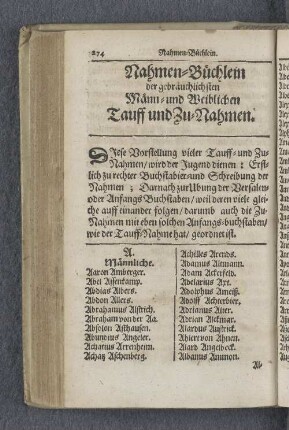 274 Nahmen-Büchlein.
Nahmen-Büchlein
der gebräuchlichsten
Männ- und Weiblichen
Tauff und Zu-Nahmen.
Diese Vorstellung vieler Tauff- und Zu-
Nahmen / wird der Jugend dienen: Erst-
lich zu rechter Buchstabier- und Schreibung der
Nahmen; Darnach zur Ubung der Versalen-
oder Anfangs Buchstaben / weil deren viele glei-
che auff einander folgen / darumb auch die Zu-
Nahmen mit eben solchen Anfangs-buchstaben /
wie der Tauff-Nahme hat / geordnet ist.
A.
Männliche.
Aaron Amberger.
Abel Assenkamp.
Abdias Albers.
Abdon Allers.
Abrahamus Alstrich.
Abraham von der Aa.
Absolon Asthausen.
Abundius Angeler.
Achatius Arrenheim.
Achatz Aschenberg.
Achilles Arends.
Adamus Altmann.
Adam Ackerfeld.
Adelarius Art.
Adolphus Ameiß.
Adolff Achterbier.
Adrianus Alter.
Adrian Alckmar.
Alardus Austrick.
Ahicer von Ahnen.
Alard Angelbeck.
Albanus Ammon.
Al-